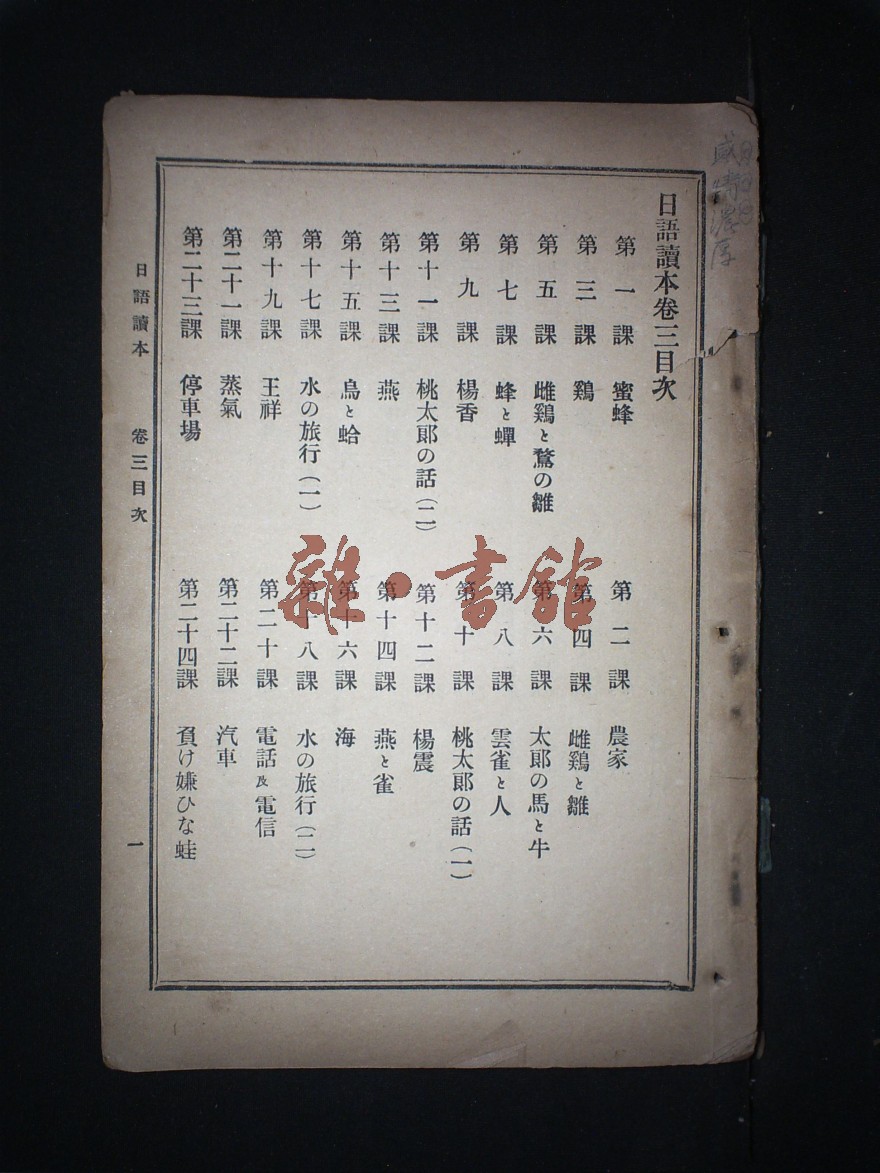 日語讀本卷三目次
第一課 蜜蜂
第二課 農家
第三課 鷄
第四課 雌鷄と雛
第五課 雌鷄と鶩の雛
第六課 太郎の馬と牛
第七課 蜂と蟬
第八課 雲雀と人
第九課 楊香
第十課 桃太郎の話(一)
第十一課 桃太郎の話(二)
第十二課 楊震
第十三課 燕
第十四課 燕と雀
第十五課 烏と蛤
第十六課 海
第十七課 水の旅行(一)
第十八課 水の旅行(二)
第十九課 王祥
第二十課 電話及電信
第二十一課 蒸氣
第二十二課 汽車
第二十三課 停車場
第二十四課 負け嫌ひな蛙
日語讀本 卷三目次 一
雜·書館